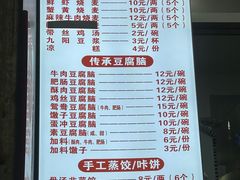 鲜虾烧麦 10元/两(5个)
蟹黄烧麦 10元/两(5个)
麻辣牛肉烧麦 元/两(5个)
带丝鸡汤 2元/碗
九阳豆浆 3元/杯
凉糕 4元/份
传承豆腐脑
牛肉豆腐脑 12元/碗
肥肠豆腐脑 12元/碗
酥肉豆腐脑 12元/碗
鸡丝豆腐脑 12元/碗
鸳鸯豆腐脑(牛肉、肥肠) 15元/碗
馓子豆腐脑 10元/碗
蛋冲豆腐脑 10元/碗
素豆腐脑 8元/碗
加料(牛肉、肥肠) 6元/份
加料馓子 3元/份
手工蒸饺/咔饼
8元/两(6个)